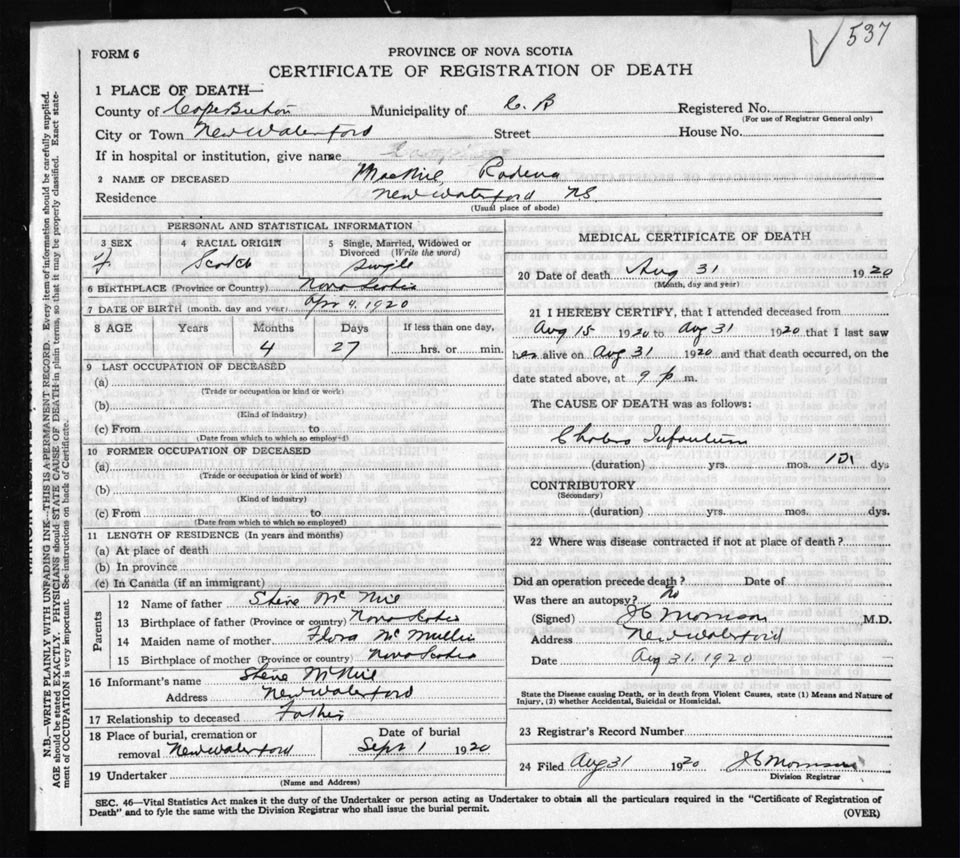 537
FORM 6
PROVINCE OF NOVA SCOTIA
CERTIFICATE OF REGISTRATION OF DEATH
1 PLACE OF DEATH—
County of Cape Breton Municipality of C. B Registered No.
(For use of Registrar General only)
City or Town New Waterford Street House No.
If in hospital or institution, give name
2 NAME OF DECEASED MacNiel Rodena
Residence New Waterford NS.
(Usual place of abode)
PERSONAL AND STATISTICAL INFORMATION
3 SEX 4 RACIAL ORIGIN 5 Single, Married, Widowed or Divorced (Write the word)
F Scotch Single
6 BIRTHPLACE (Province or Country) Nova Scotia
7 DATE OF BIRTH (month, day and year) Apr 4, 1920
8 AGE Years Months Days If less than one day,
4 27 hrs. or min.
9 LAST OCCUPATION OF DECEASED
(a)
(Trade or occupation or kind or work)
(b)
(Kind of industry)
(c) From to
(Date from which to which so employed)
10 FORMER OCCUPATION OF DECEASED
(a)
(Trade or occupation or kind of work)
(b)
(Kind of industry)
(c) From to
(Date from which to which so employed)
11 LENGTH OF RESIDENCE (In years and months)
(a) At place of death
(b) In province
(c) In Canada (if an immigrant)
Parents
12 Name of father Steve Mc Niel
13 Birthplace of father (Province or country) Nova Scotia
14 Maiden name of mother Flora Mc Mullin
15 Birthplace of mother (Province or country) Nova Scotia
16 Informant's name Steve McNiel
Address New Waterford
17 Relationship to deceased Father
18 Place of burial, cremation or removal New Waterford
Date of burial
Sept 1 1920
19 Undertaker
(Name and Address)
MEDICAL CERTIFICATE OF DEATH
20 Date of death Aug 31 1920
(Month, day and year)
21 I HEREBY CERTIFY, that I attended deceased from
Aug 15 1920 to Aug 31 1920 that I last saw
her alive on Aug 31 1920 and that death occurred, on the
date stated above, at 9 p m.
The CAUSE OF DEATH was as follows:
Cholera Infantum
(duration) yrs. mos. dys
CONTRIBUTORY
(Secondary)
(duration) yrs. mos. dys.
22 Where was disease contracted if not at place of death?
Did an operation precede death? Date of
Was there an autopsy? No
(Signed) Morrison M.D.
Address New Waterford
Date Aug 31, 1920
State the Disease causing Death, or in death from Violent Causes, state (1) Means and Nature of
Injury, (2) whether Accidental, Suicidal or Homicidal.
23 Registrar's Record Number
24 Filed Aug 31 1920 Morrison
Division Registrar
SEC. 46—Vital Statistics Act makes it the duty of the Undertaker or person acting as Undertaker to obtain all the particulars required in the "Certificate of Registration of
Death" and to fyle the same with the Division Registrar who shall issue the burial permit. (OVER)
N.B.—WRITE PLAINLY WITH UNFADING INK—THIS IS A PERMANENT RECORD. Every item of information should be carefully supplied.
AGE should be stated EXACTLY. PHYSICIANS should STATE CAUSE OF DEATH in plain terms, so that it may be properly classified. Exact state-
ment of OCCUPATION is very important. See instructions on back of Certificate.